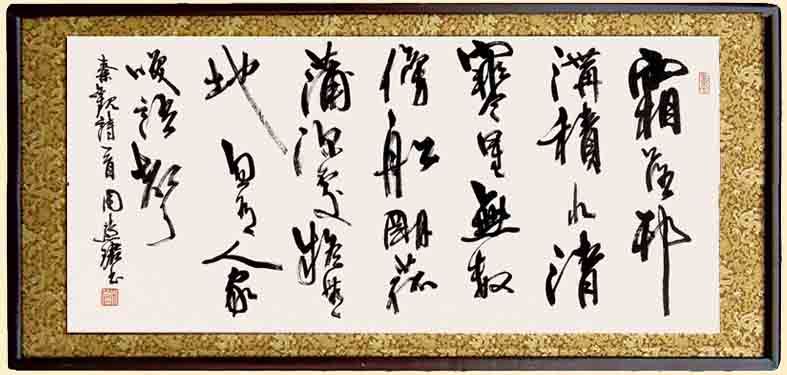 霜落邗
溝積水清
寒星無數
傍船明菰
蒲深處疑無
地忽有人家
咲語聲
秦觀詩一首周慧珺书